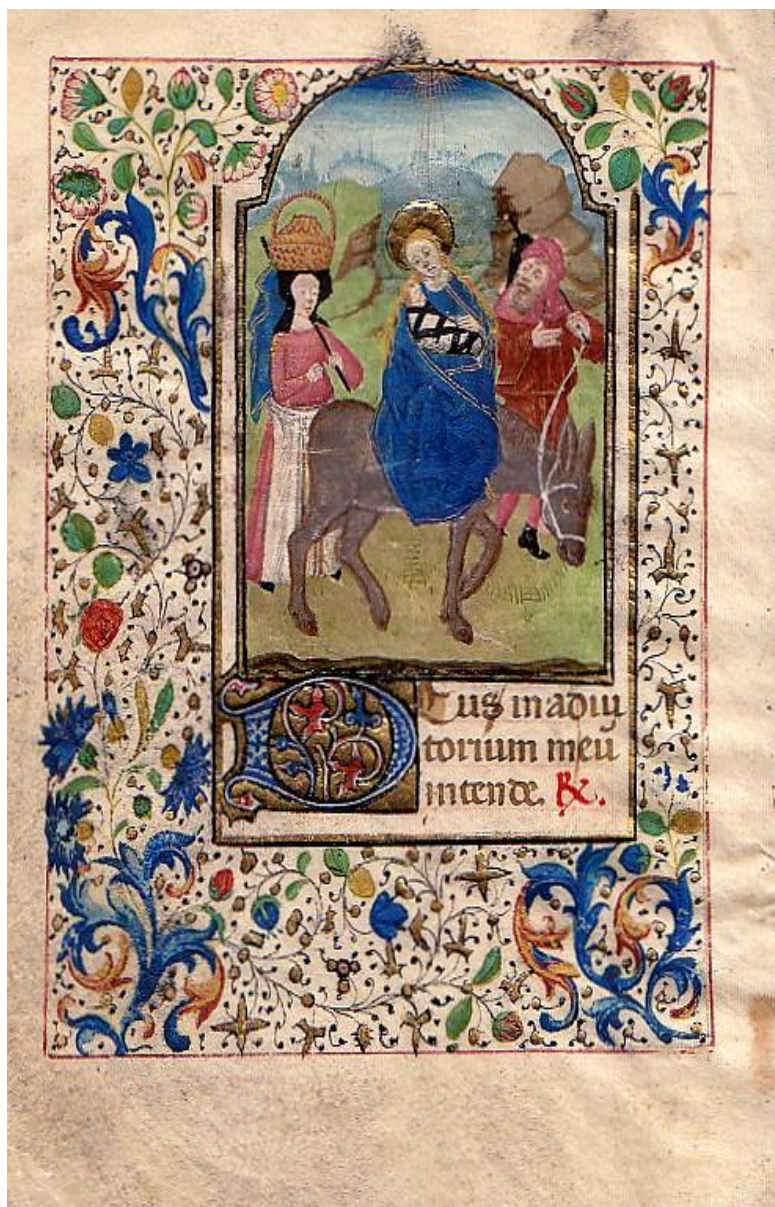 Deus in adiu
torium meū
intende. ℟.